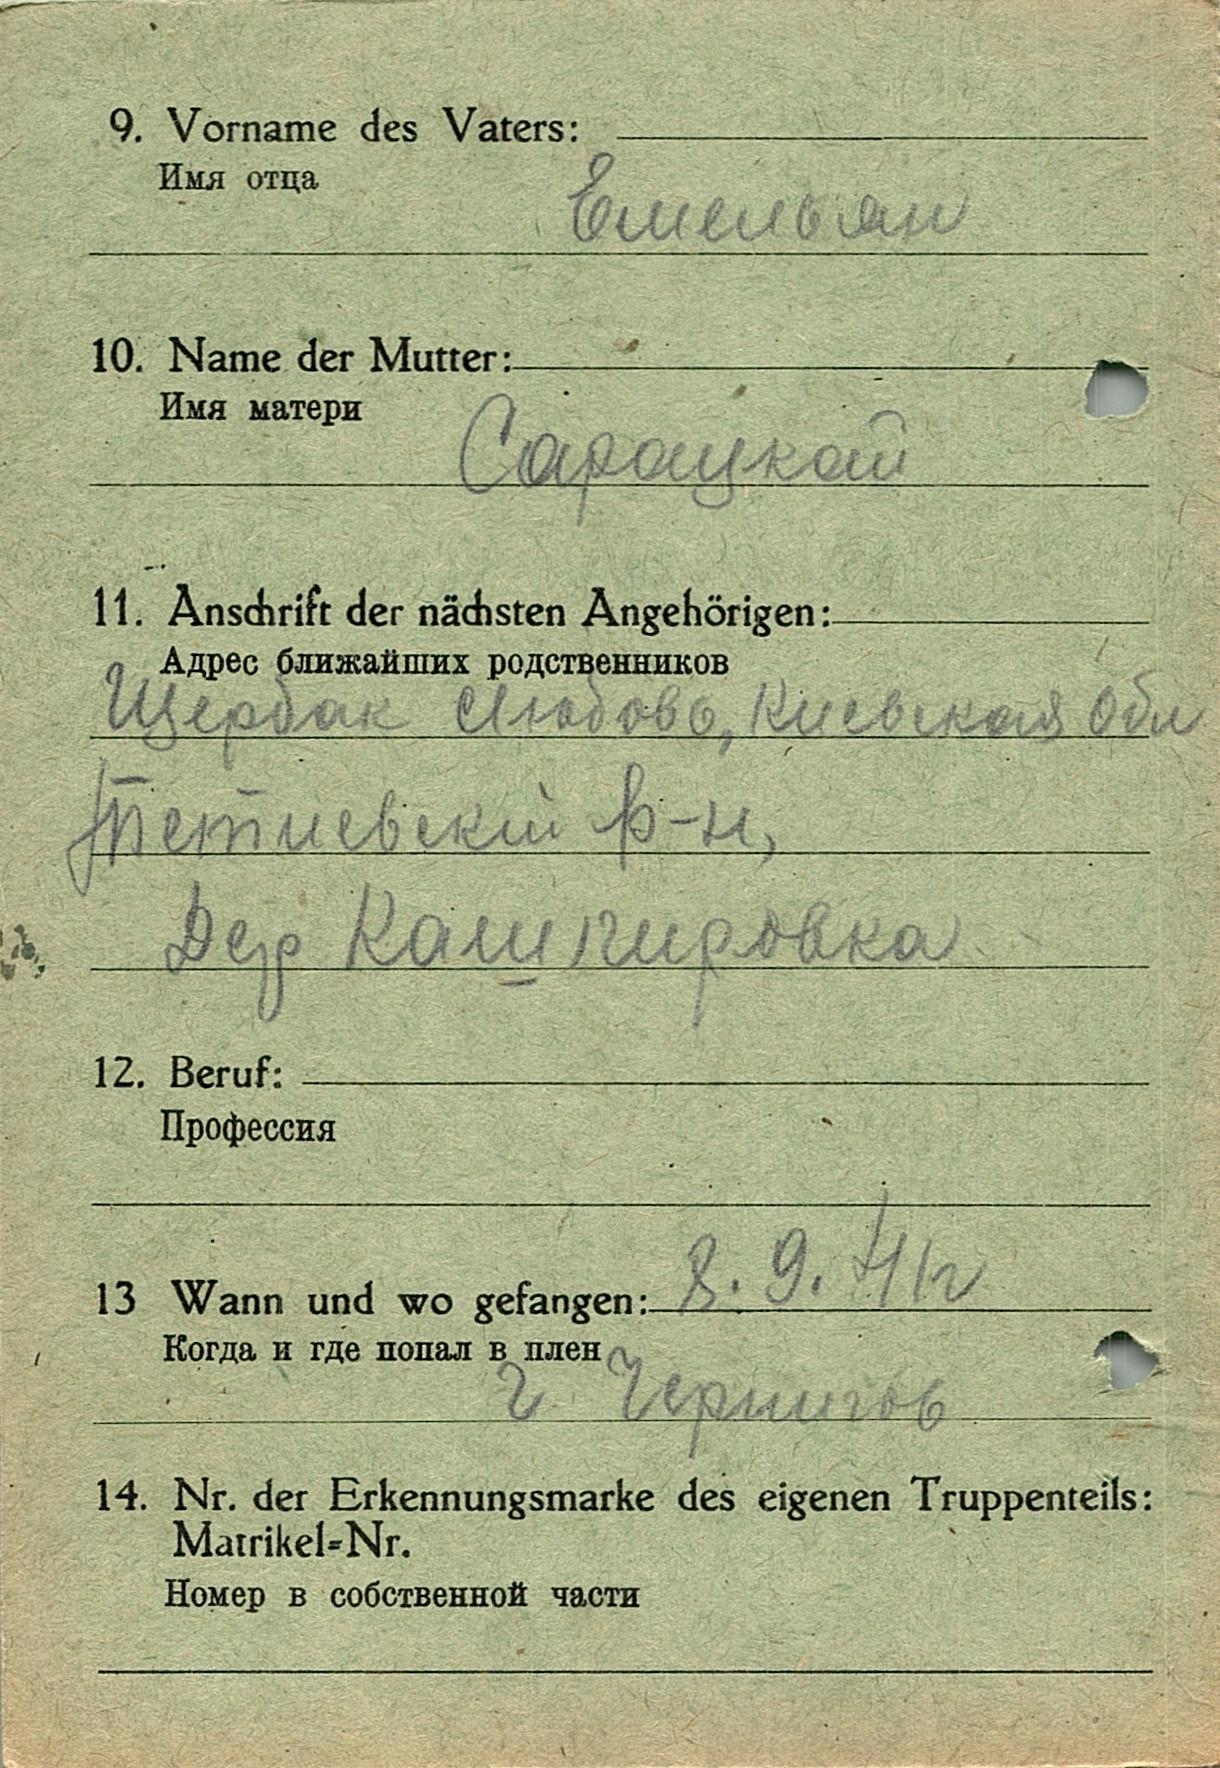 9. Vorname des Vaters:
Имя отца
Емельян
10. Name der Mutter:
Имя матери
Сарацкой
11. Anschrift der nächsten Angehörigen:
Адрес ближайших родственников
Щербак Любовь, Киевская Обл
Тетиевский р-н,
Дер Кашпировка
12. Beruf:
Профессия
13 Wann und wo gefangen: 8. 9. 41г
Когда и где попал в плен
г Чернигов
14. Nr. der Erkennungsmarke des eigenen Truppenteils:
Matrikel=Nr.
Номер в собственной части